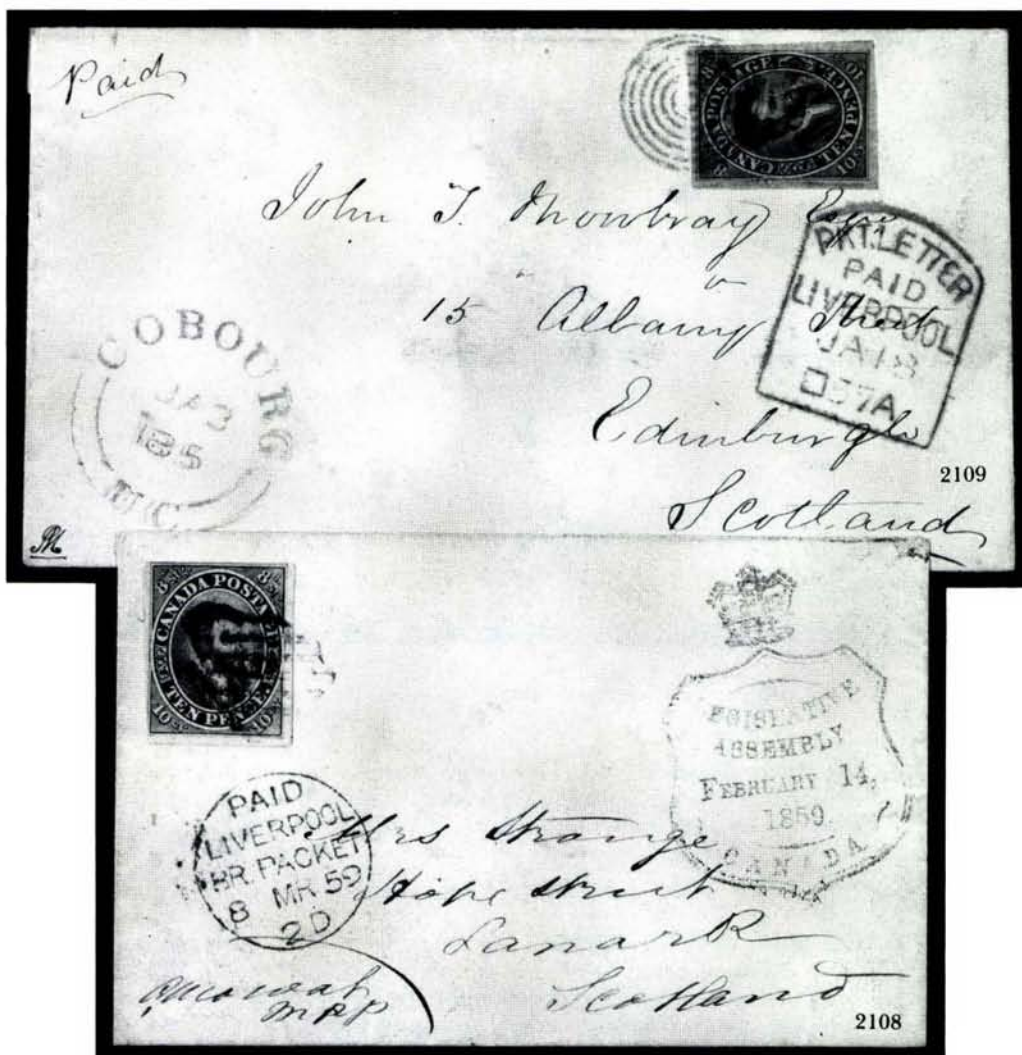 Paid
8d. Stg.
CANADA POSTAGE
TEN PENCE
10
John T. Mowbray Esqr
15 Albany Street
Edinburgh
Scotland
PKT. LETTER
PAID
LIVERPOOL
JA 18
57A
COBOURG
JA 3
185
U.C.
2109
8d. Stg.
CANADA POSTAGE
TEN PENCE
10
LEGISLATIVE
ASSEMBLY
FEBRUARY 14,
1859
CANADA
PAID
LIVERPOOL
BR. PACKET
8 MR 59
2D
Mrs Strange
Hope Street
Lanark
Scotland
MPP
2108